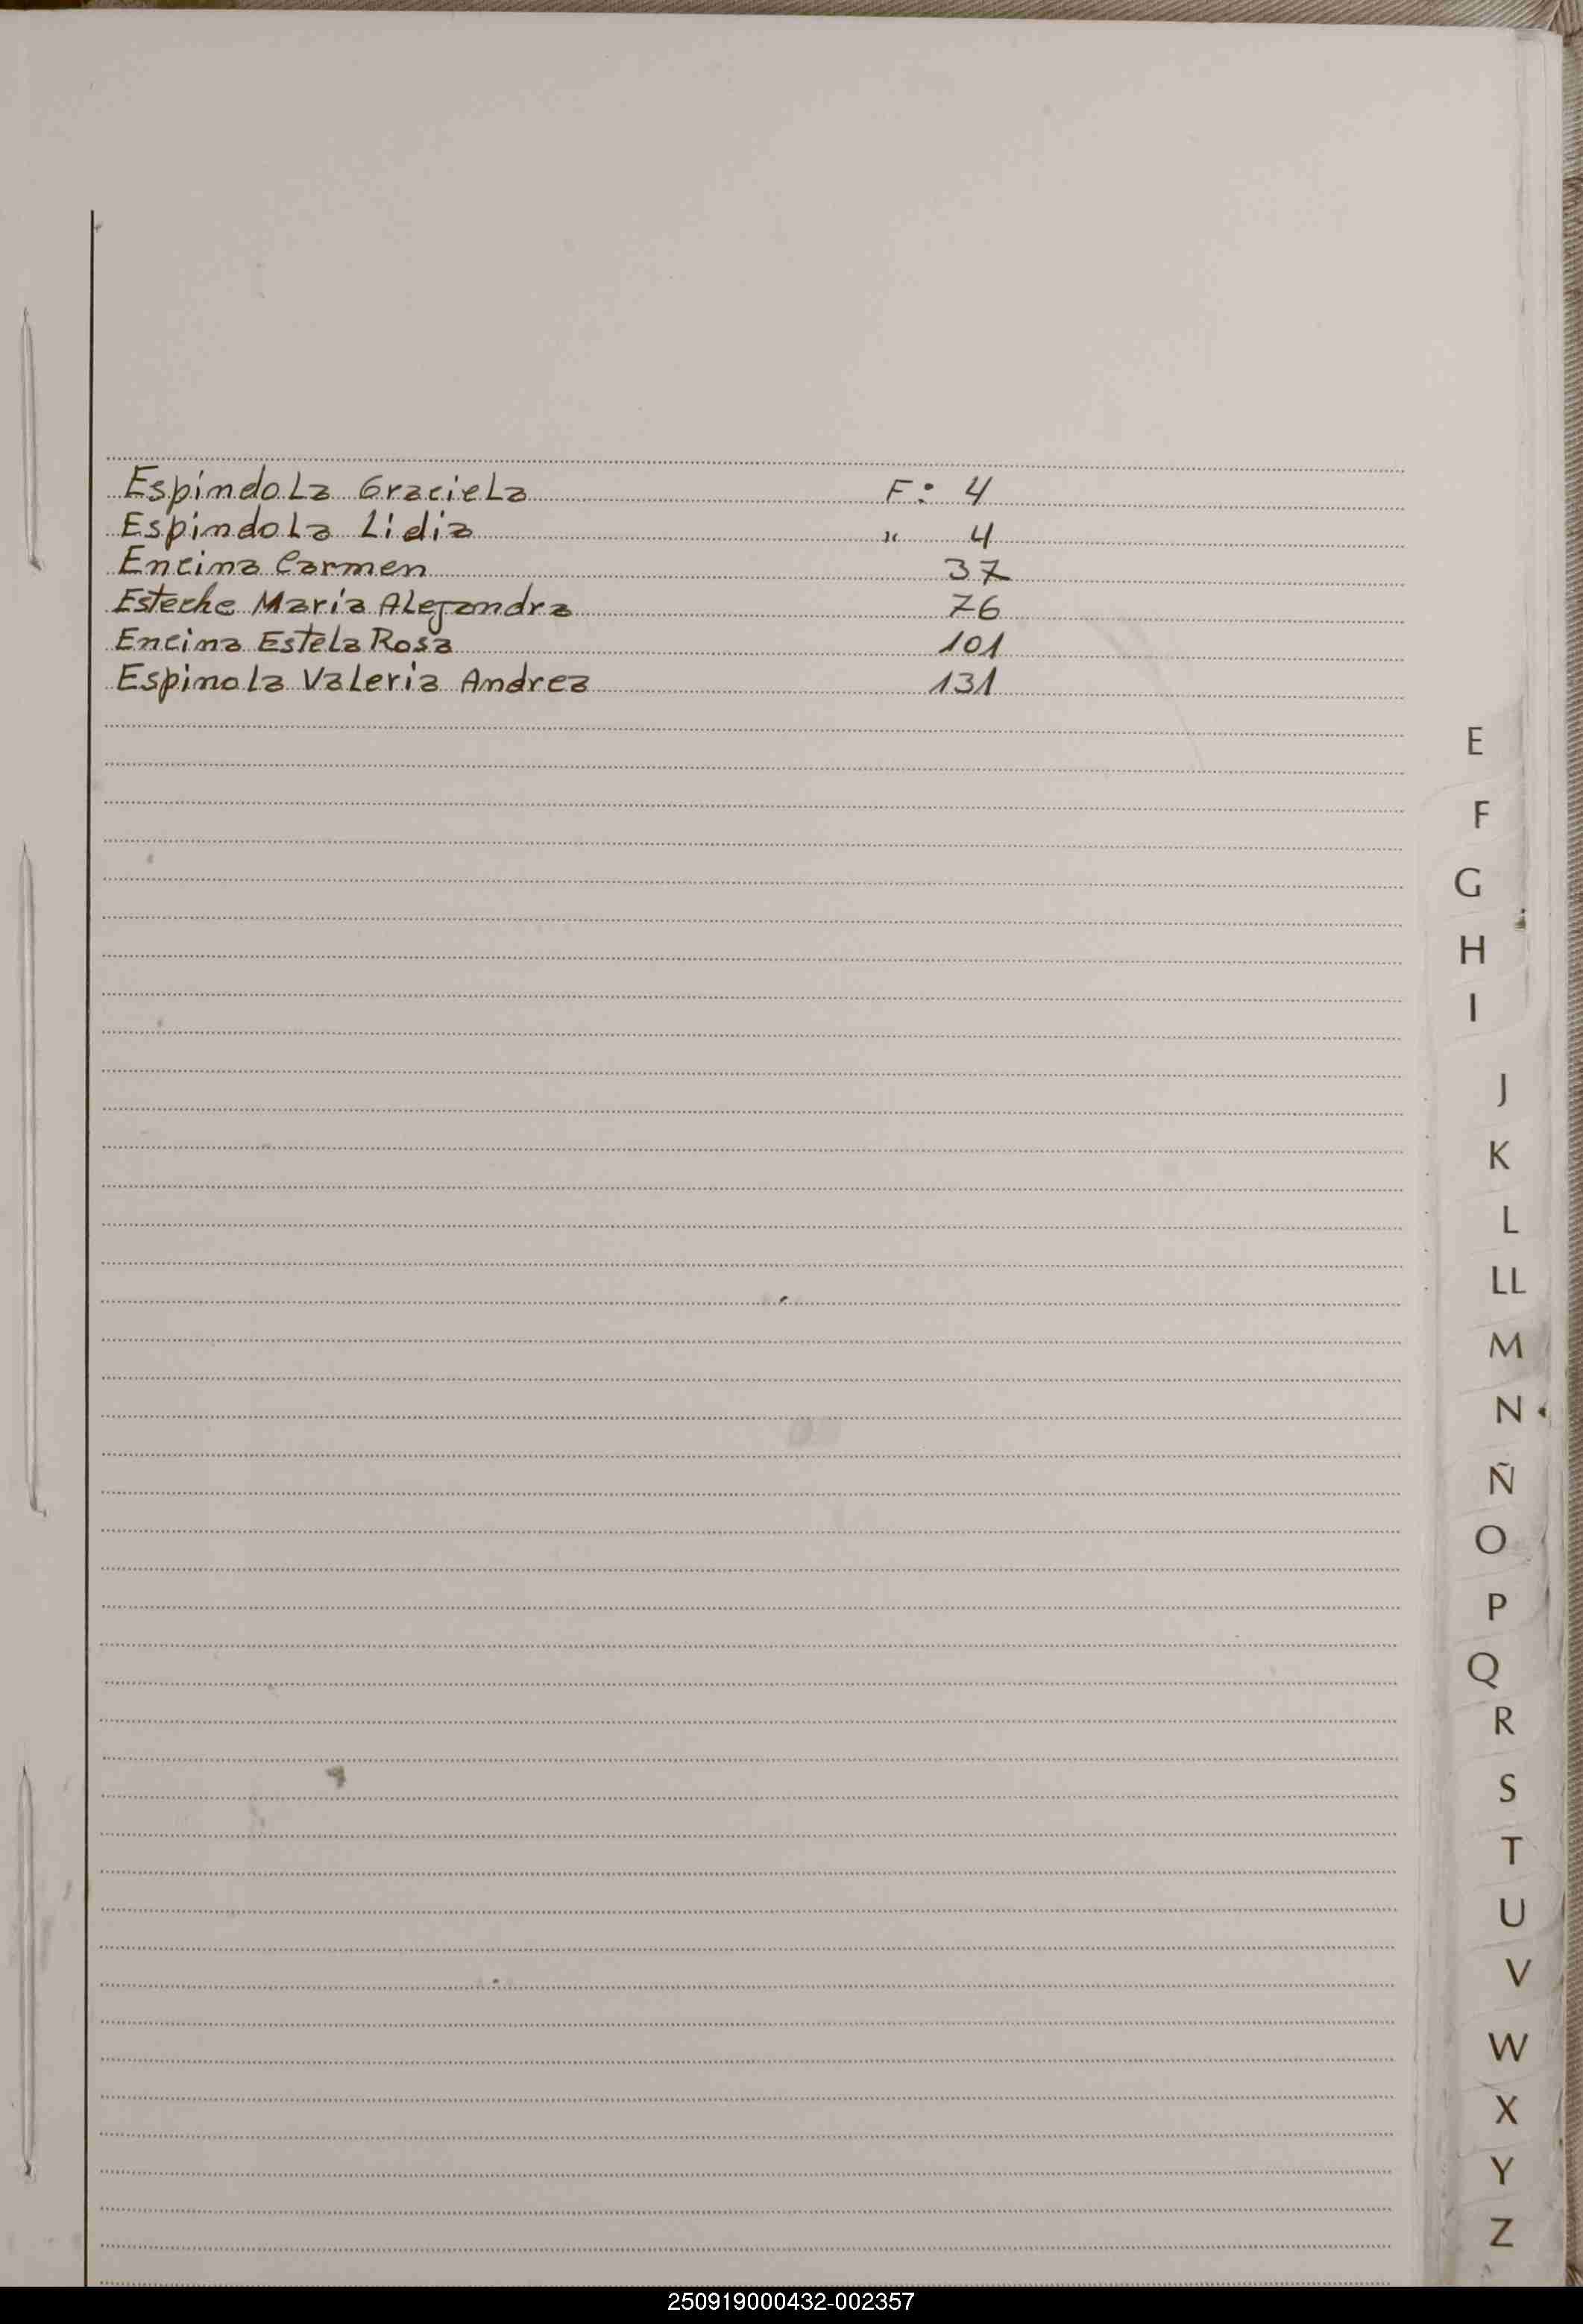 Espindola Graciela F: 4
Espindola Lidia " 4
Encina Carmen 37
Esteche Maria Alejandra 76
Encina Estela Rosa 101
Espinola Valeria Andrea 131
E
F
G
H
I
J
K
L
LL
M
N
Ñ
O
P
Q
R
S
T
U
V
W
X
Y
Z
250919000432-002357